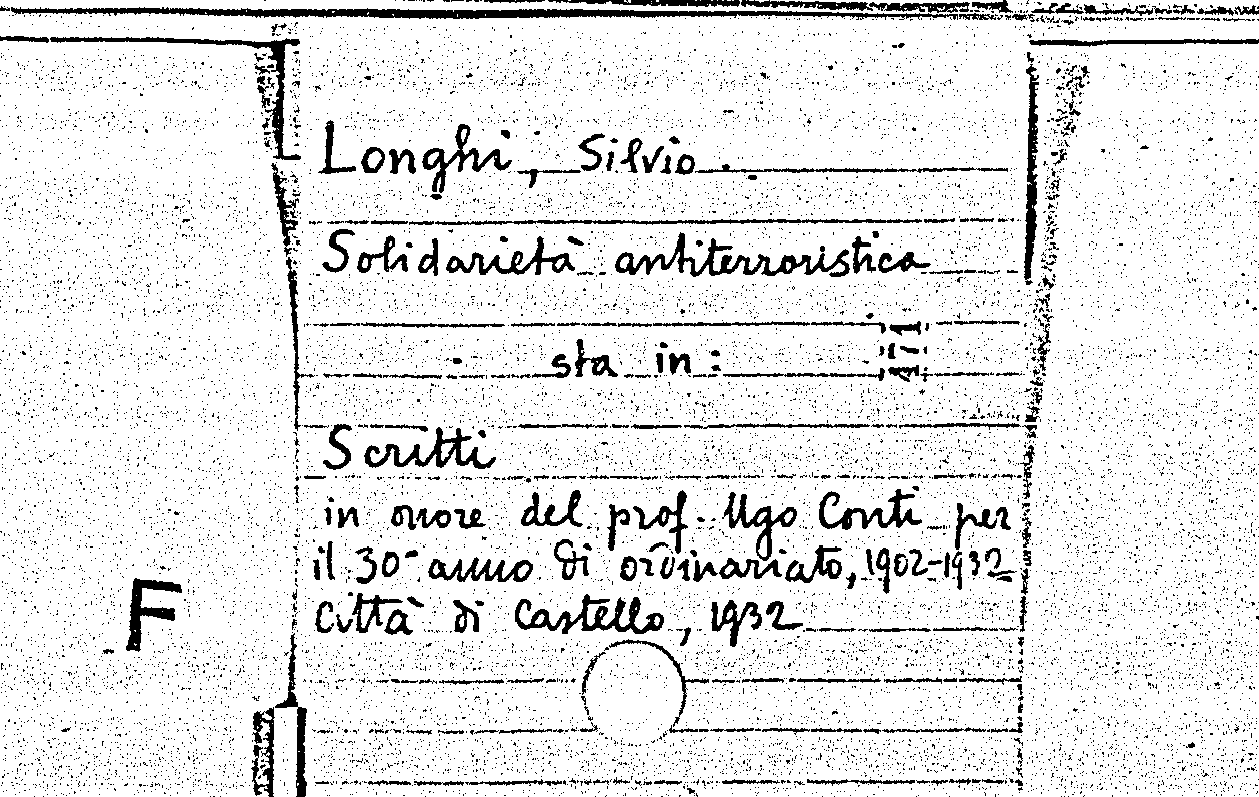 Longhi, Silvio.
Solidarietà antiterroristica
sta in:
Scritti
in onore del prof. Ugo Conti per
il 30° anno di ordinariato, 1902-1932
Città di Castello, 1932
F